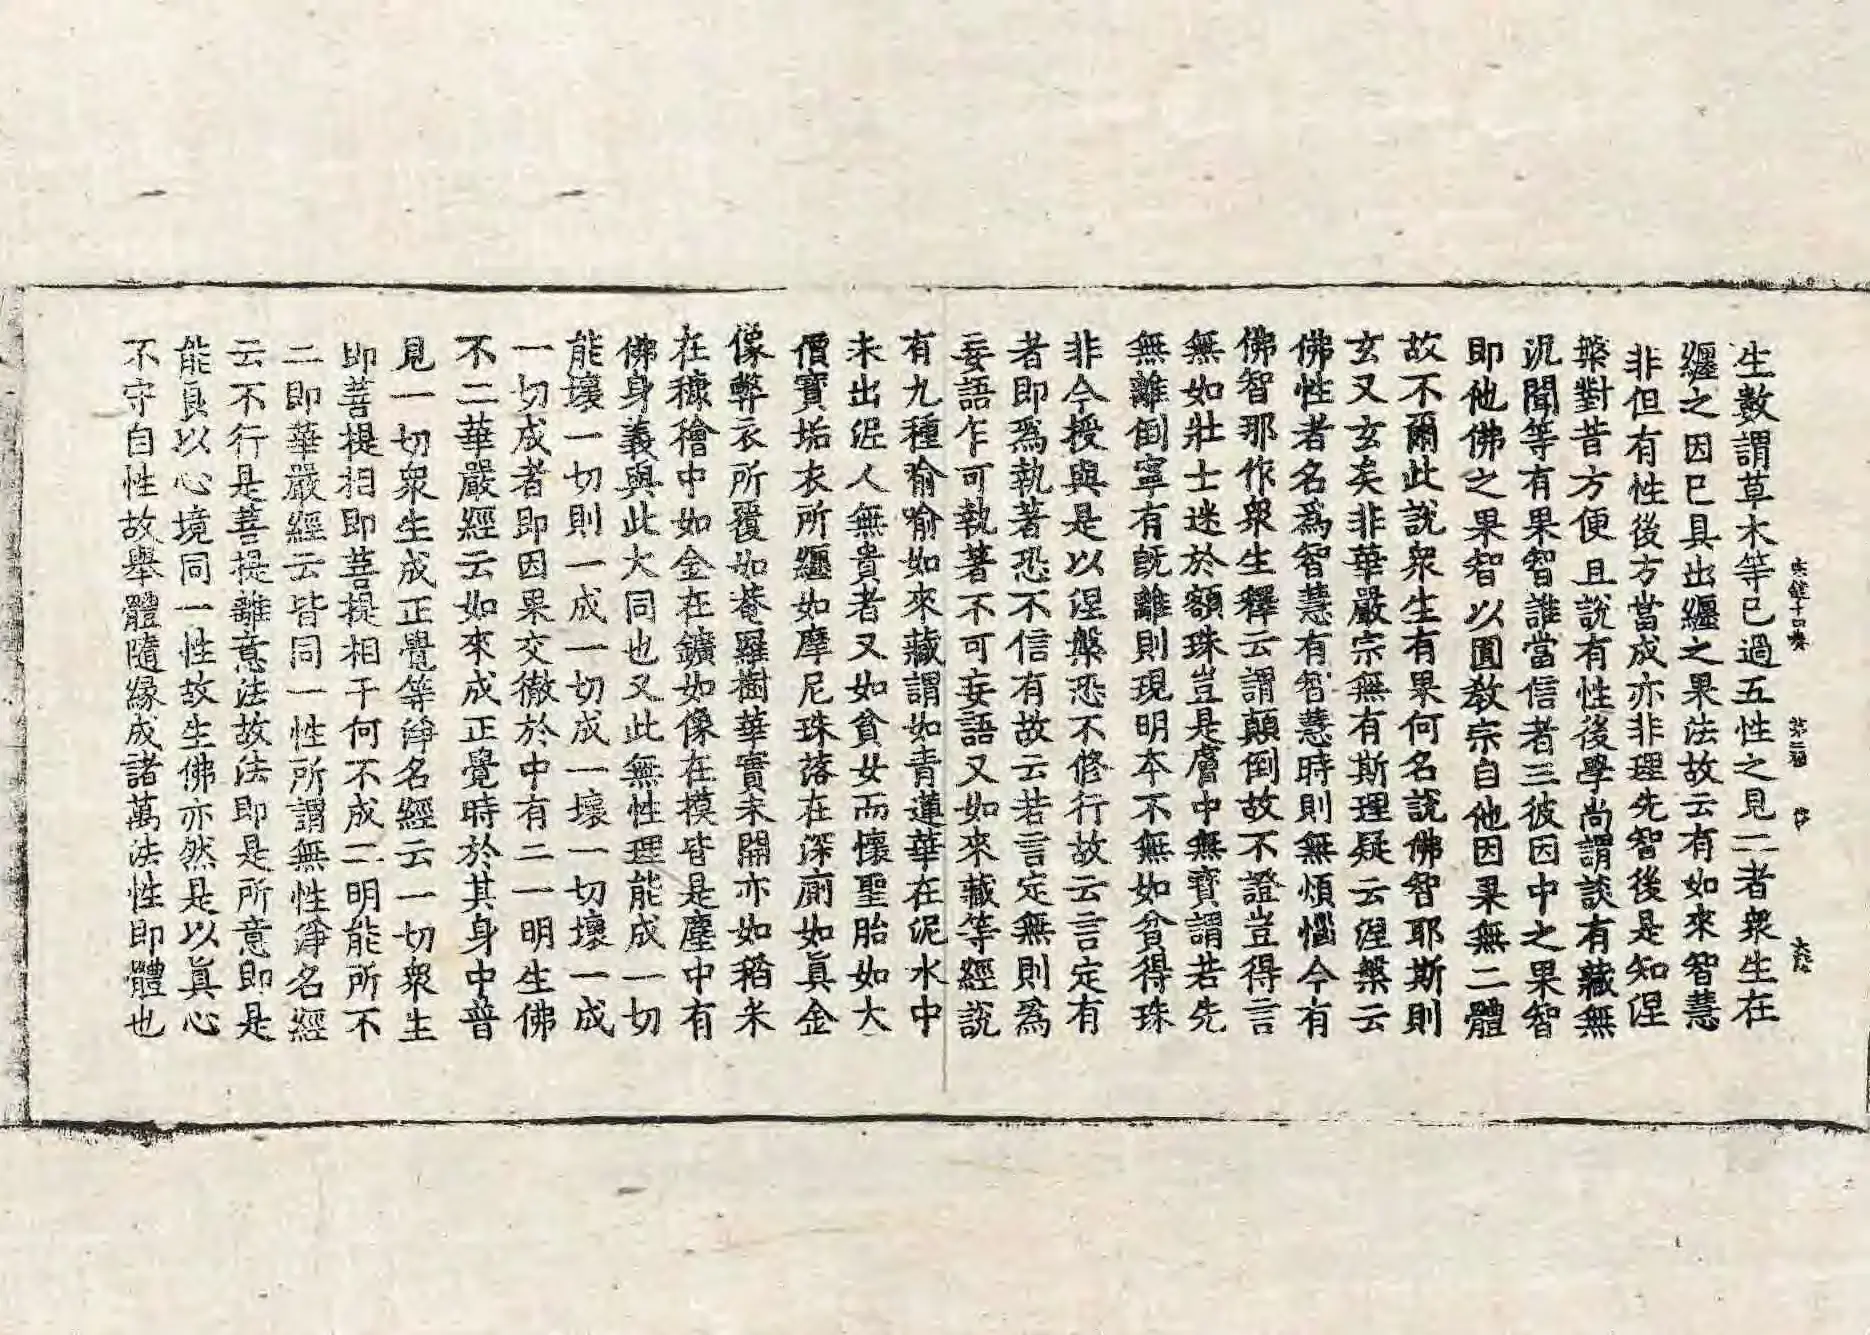 生數謂草木等已過五性之見二者衆生在
纏之因已具出纏之果法故云有如來智慧
非但有性後方當成亦非理先智後是知涅
槃對昔方便且說有性後學尚謂談有藏無
況聞等有果智誰當信者三彼因中之果智
即他佛之果智以圓教宗自他因果無二體
故不爾此說衆生有果何名說佛智耶斯則
玄又玄矣非華嚴宗無有斯理疑云涅槃云
佛性者名爲智慧有智慧時則無煩惱今有
佛智那作衆生釋云謂顛倒故不證豈得言
無如壯士迷於額珠豈是膚中無寶謂若先
無離倒寧有既離則現明本不無如貧得珠
非今授與是以涅槃恐不修行故云言定有
者即爲執著恐不信有故云若言定無則爲
妄語乍可執著不可妄語又如來藏等經說
有九種喻喻如來藏謂如青蓮華在泥水中
未出泥人無貴者又如貧女而懷聖胎如大
價寶垢衣所纏如摩尼珠落在深廁如真金
像弊衣所覆如菴羅樹華實未開亦如稻米
在糠糩中如金在鑛如像在模皆是塵中有
佛身義與此大同也又此無性理能成一切
能壞一切則一成一切成一壞一切壞一成
一切成者即因果交徹於中有二一明生佛
不二華嚴經云如來成正覺時於其身中普
見一切衆生成正覺等淨名經云一切衆生
即菩提相即菩提相于何不成二明能所不
二即華嚴經云皆同一性所謂無性淨名經
云不行是菩提離意法故法即是所意即是
能良以心境同一性故生佛亦然是以真心
不守自性故舉體隨緣成諸萬法性即體也